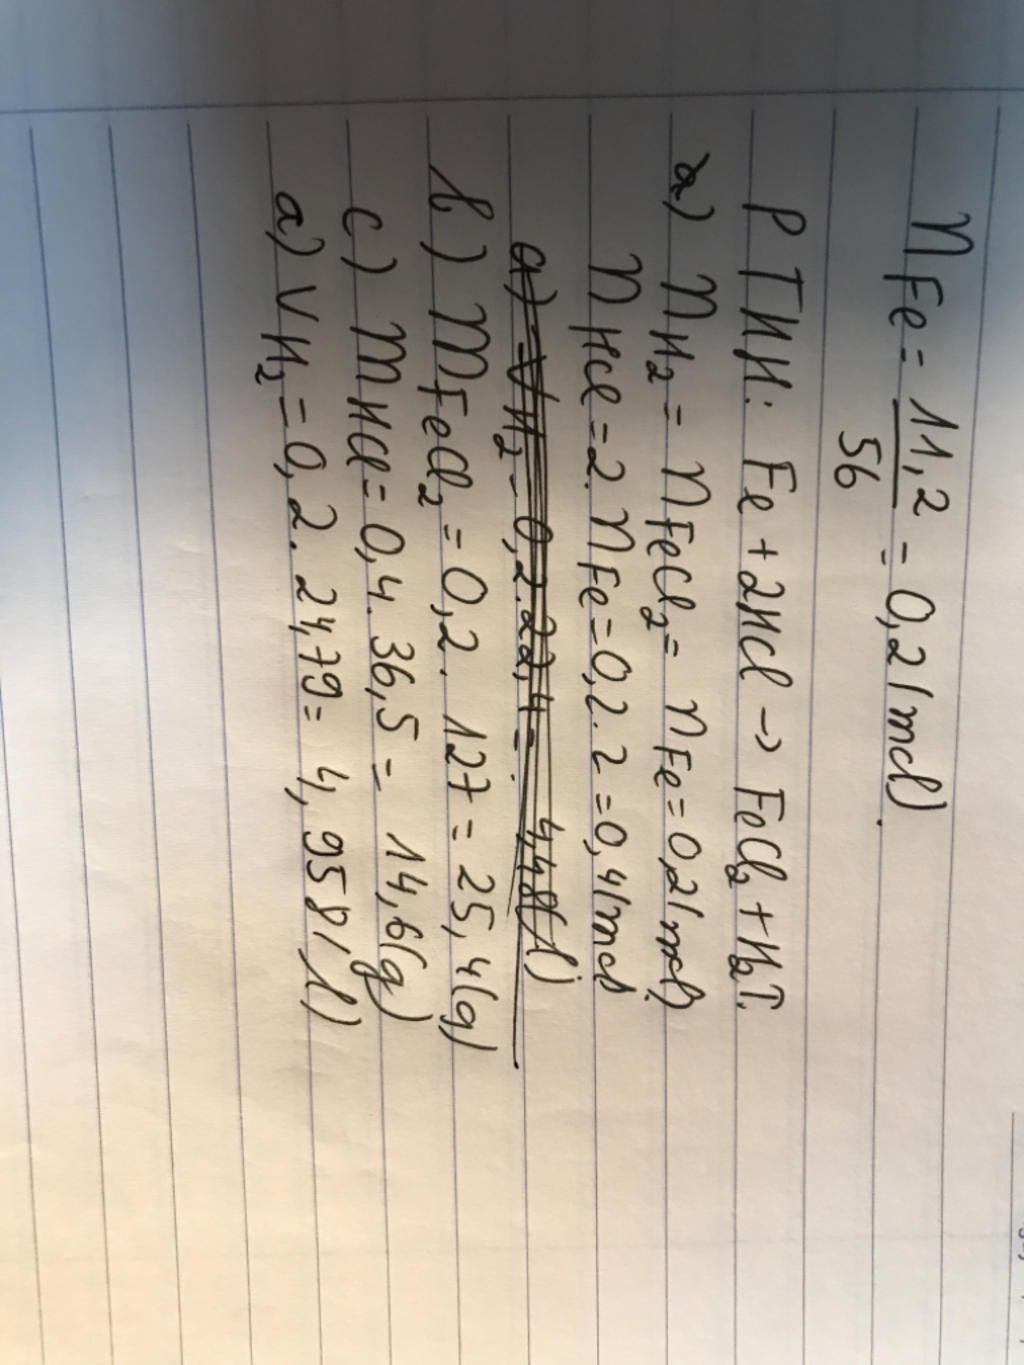 nFe = 11,2 / 56 = 0,2 (mol).
PTHH: Fe + 2HCl → FeCl2 + H2↑.
a) nH2 = nFeCl2 = nFe = 0,2 (mol)
nHCl = 2. nFe = 0,2. 2 = 0,4 (mol)
a) VH2 = 0,2. 22,4 = 4,48 (l)
b) mFeCl2 = 0,2. 127 = 25,4 (g)
c) mHCl = 0,4. 36,5 = 14,6 (g)
a) VH2 = 0,2. 24,79 = 4,958 (l)